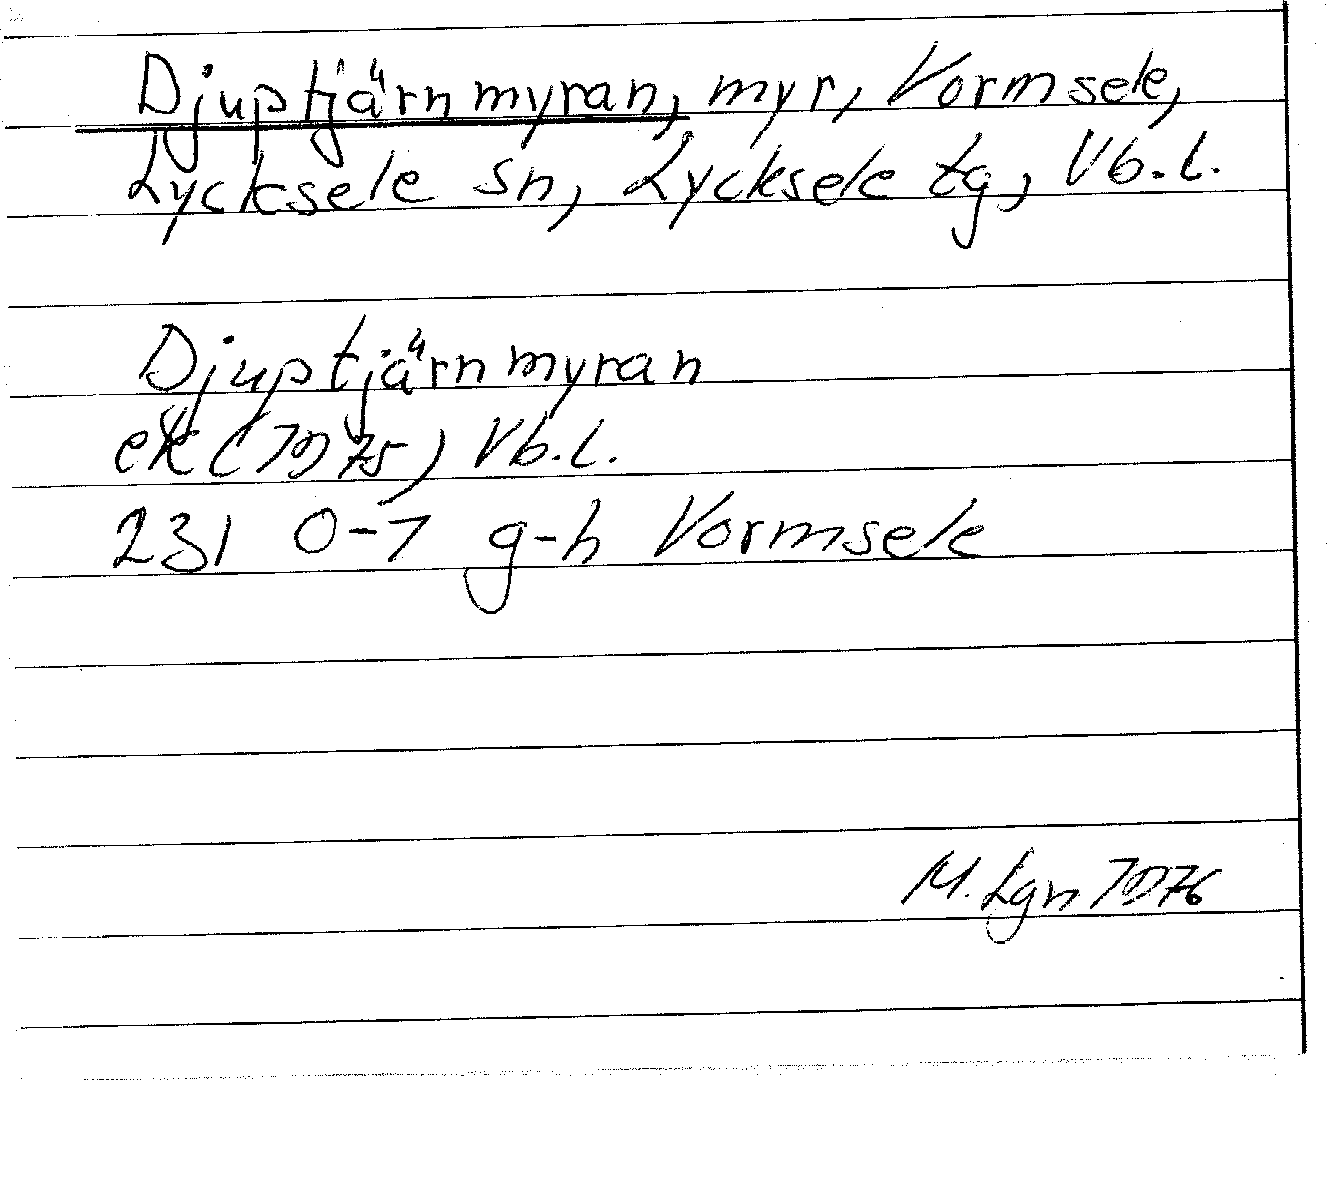 Djuptjärnmyran, myr, Vormsele,
Lycksele sn, Lycksele tg, Vb.l.
Djuptjärnmyran
ek (1975) Vb.l.
231 0-1 g-h Vormsele
M. Lgn 1976